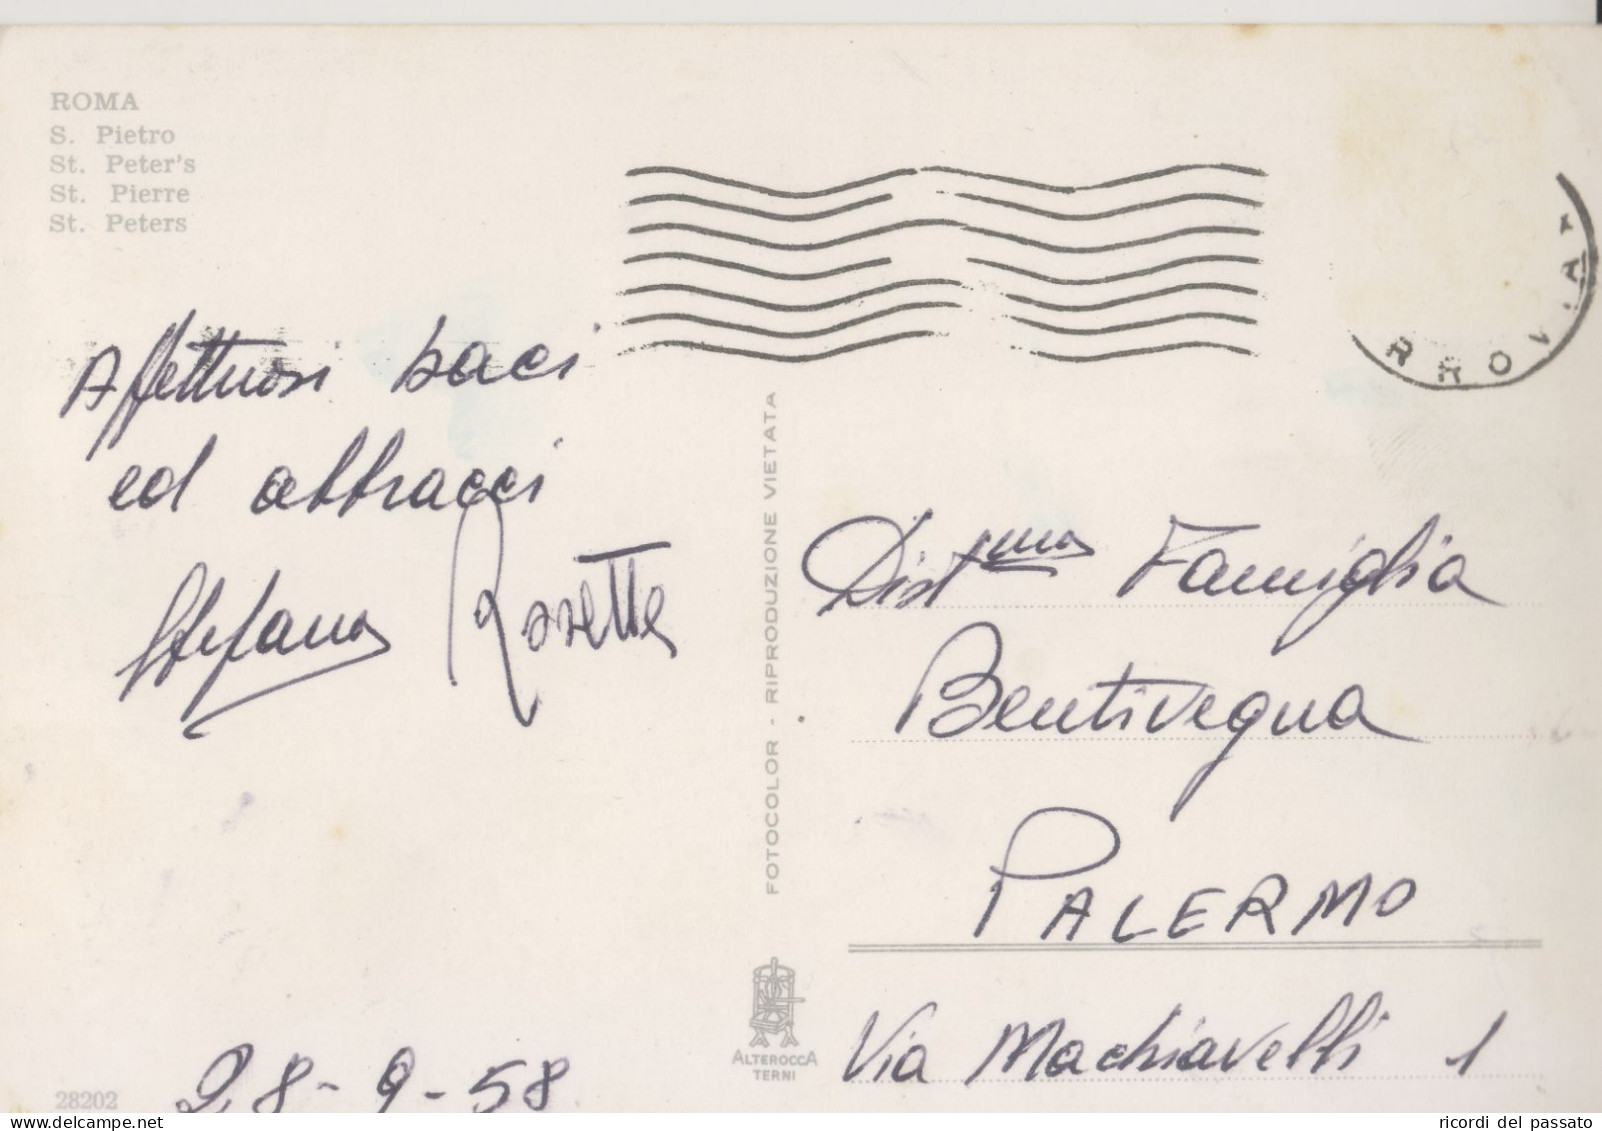 ROMA
S. Pietro
St. Peter's
St. Pierre
St. Peters
Affettuosi baci
ed abbracci
Stefano Rosetta
28-9-58
28202
FOTOCOLOR - RIPRODUZIONE VIETATA
ALTEROCCA
TERNI
RROVIA
Dist.ma Famiglia
Bentivegna
PALERMO
Via Machiavelli 1
ricordi del passato